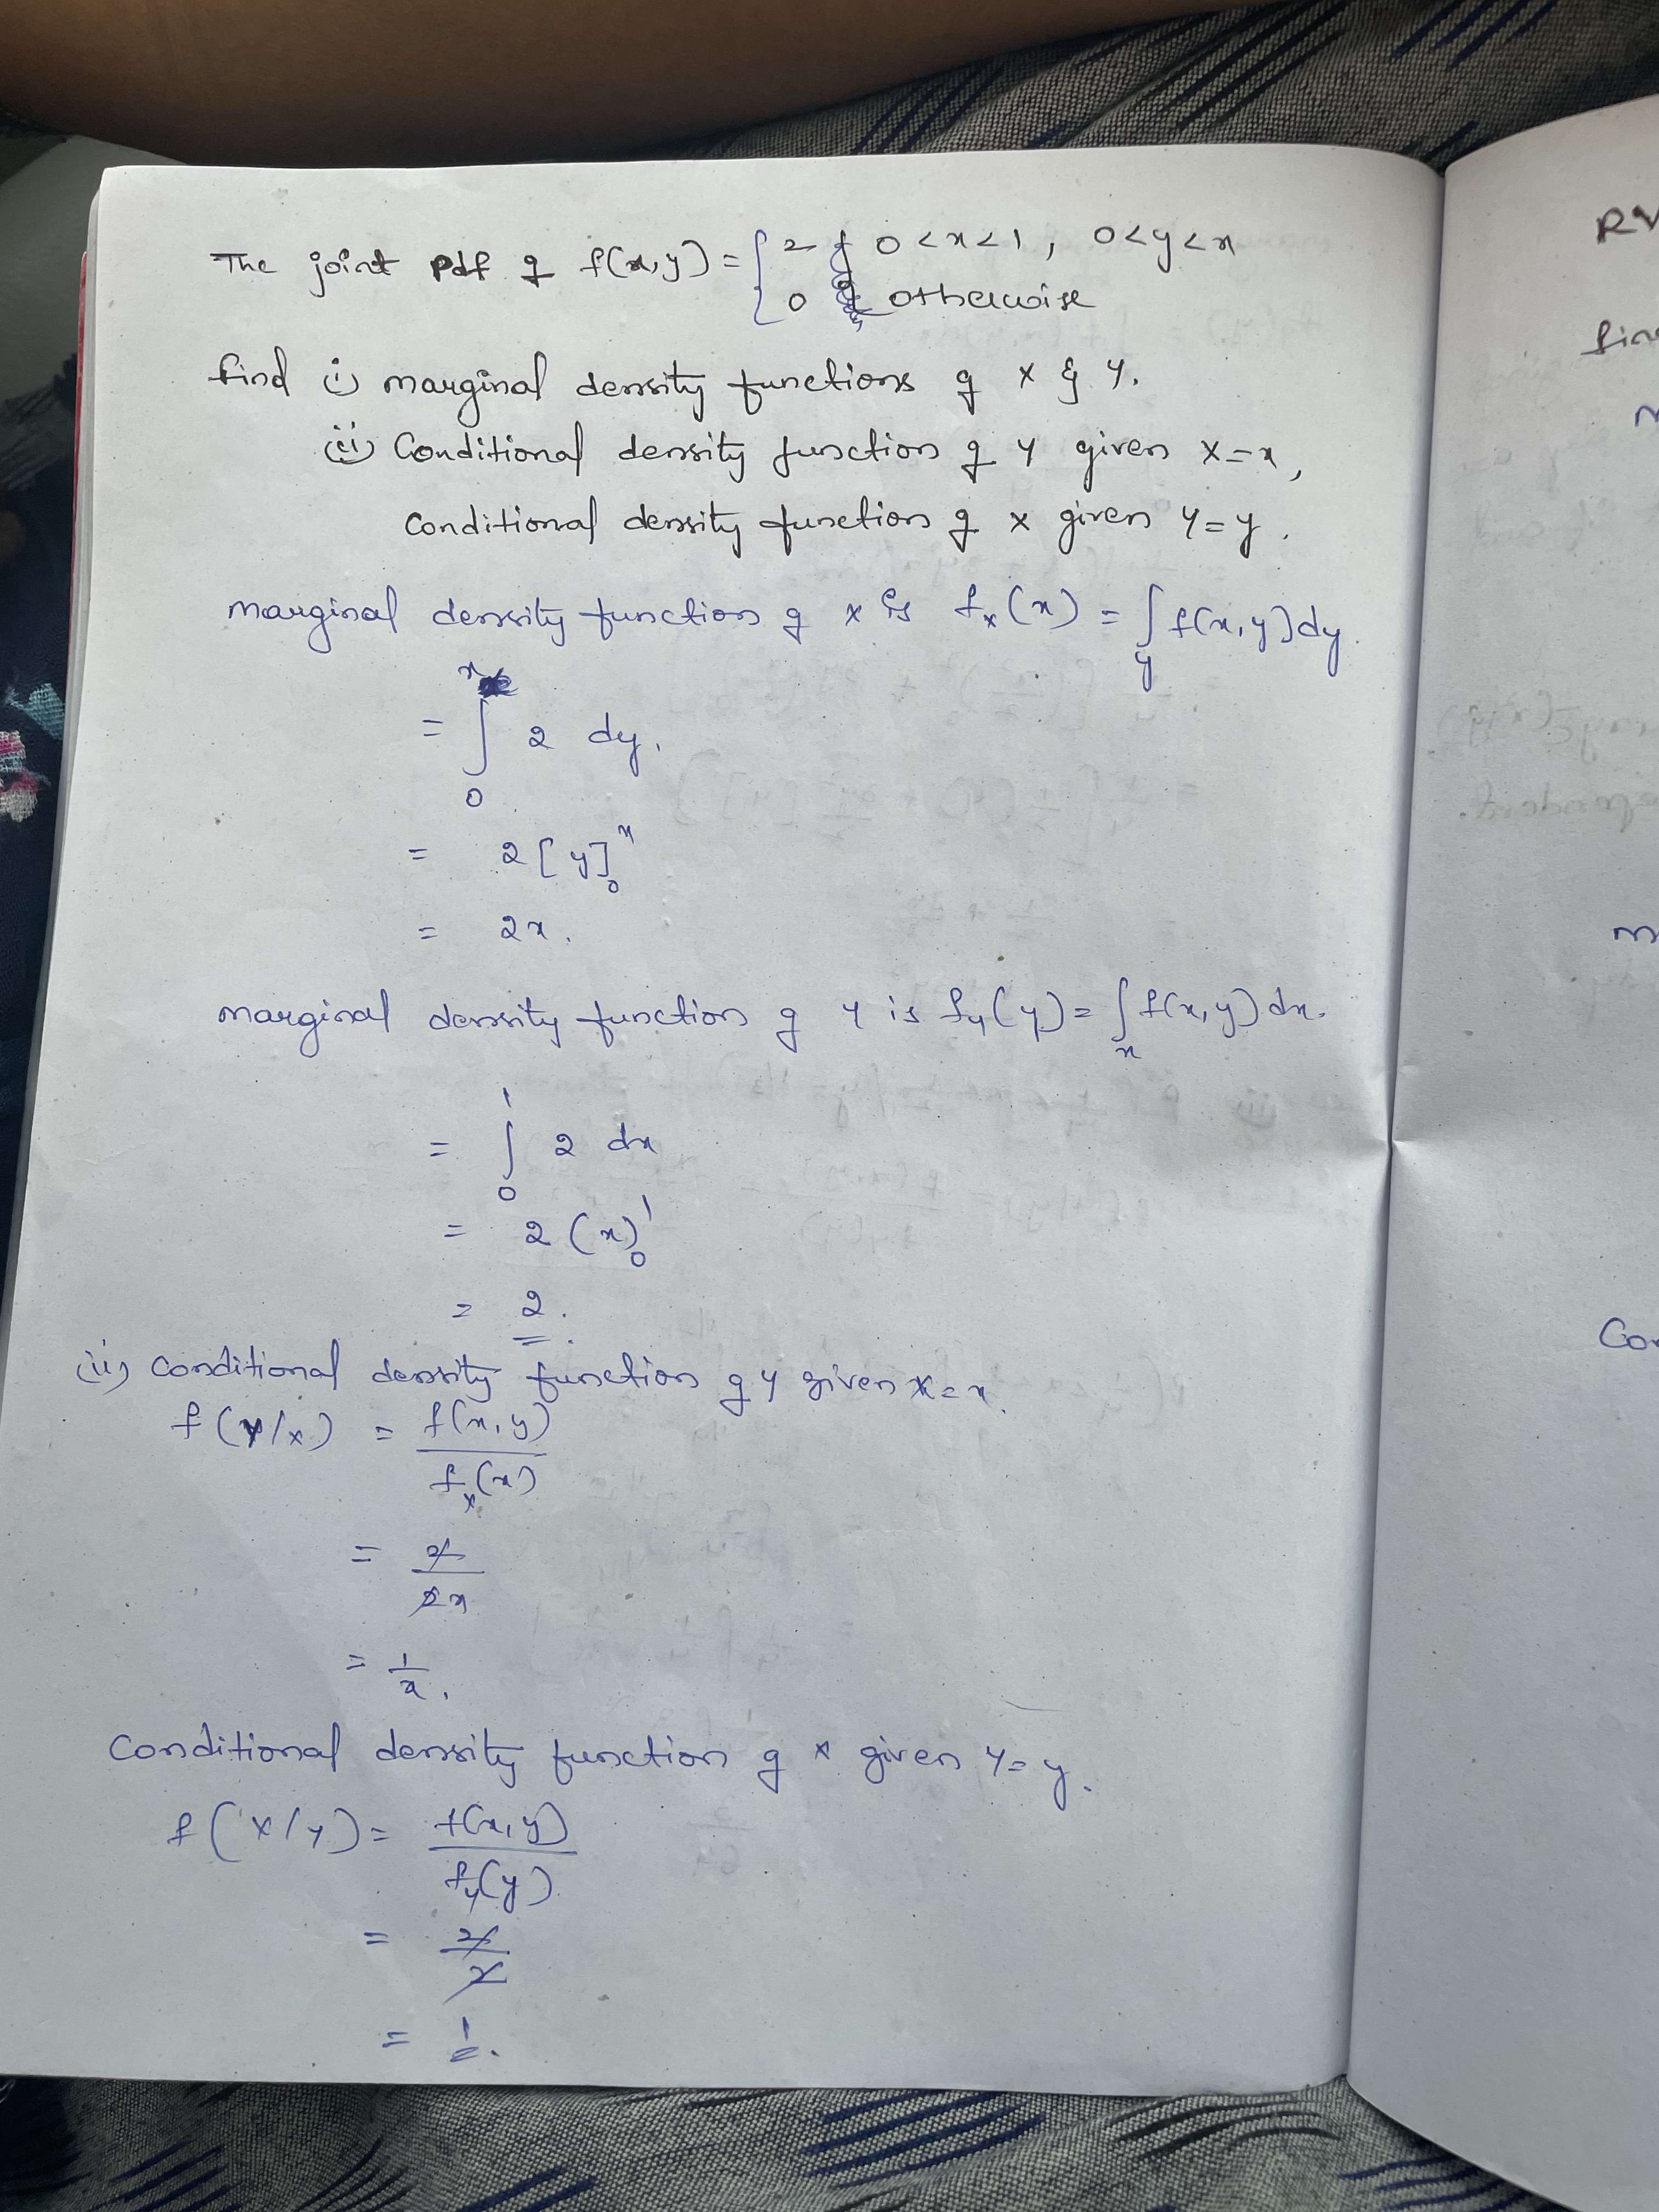 The joint Pdf of f(x,y) = { 2 ; 0<x<1, 0<y<x
0 otherwise
find (i) marginal density functions of X & Y.
(ii) Conditional density function of Y given X=x,
Conditional density function of X given Y=y.
Marginal density function of X is f_X(x) = ∫_y f(x,y) dy.
= ∫_0^x 2 dy.
= 2[y]_0^x
= 2x.
Marginal density function of Y is f_Y(y) = ∫_x f(x,y) dx.
= ∫_0^1 2 dx
= 2(x)_0^1
= 2.
(ii) Conditional density function of Y given X=x.
f(Y/X) = f(x,y)/f_X(x)
= 2/2x
= 1/x.
Conditional density function of X given Y=y.
f(X/Y) = f(x,y)/f_Y(y)
= 2/2
= 1.
RV
m
Con